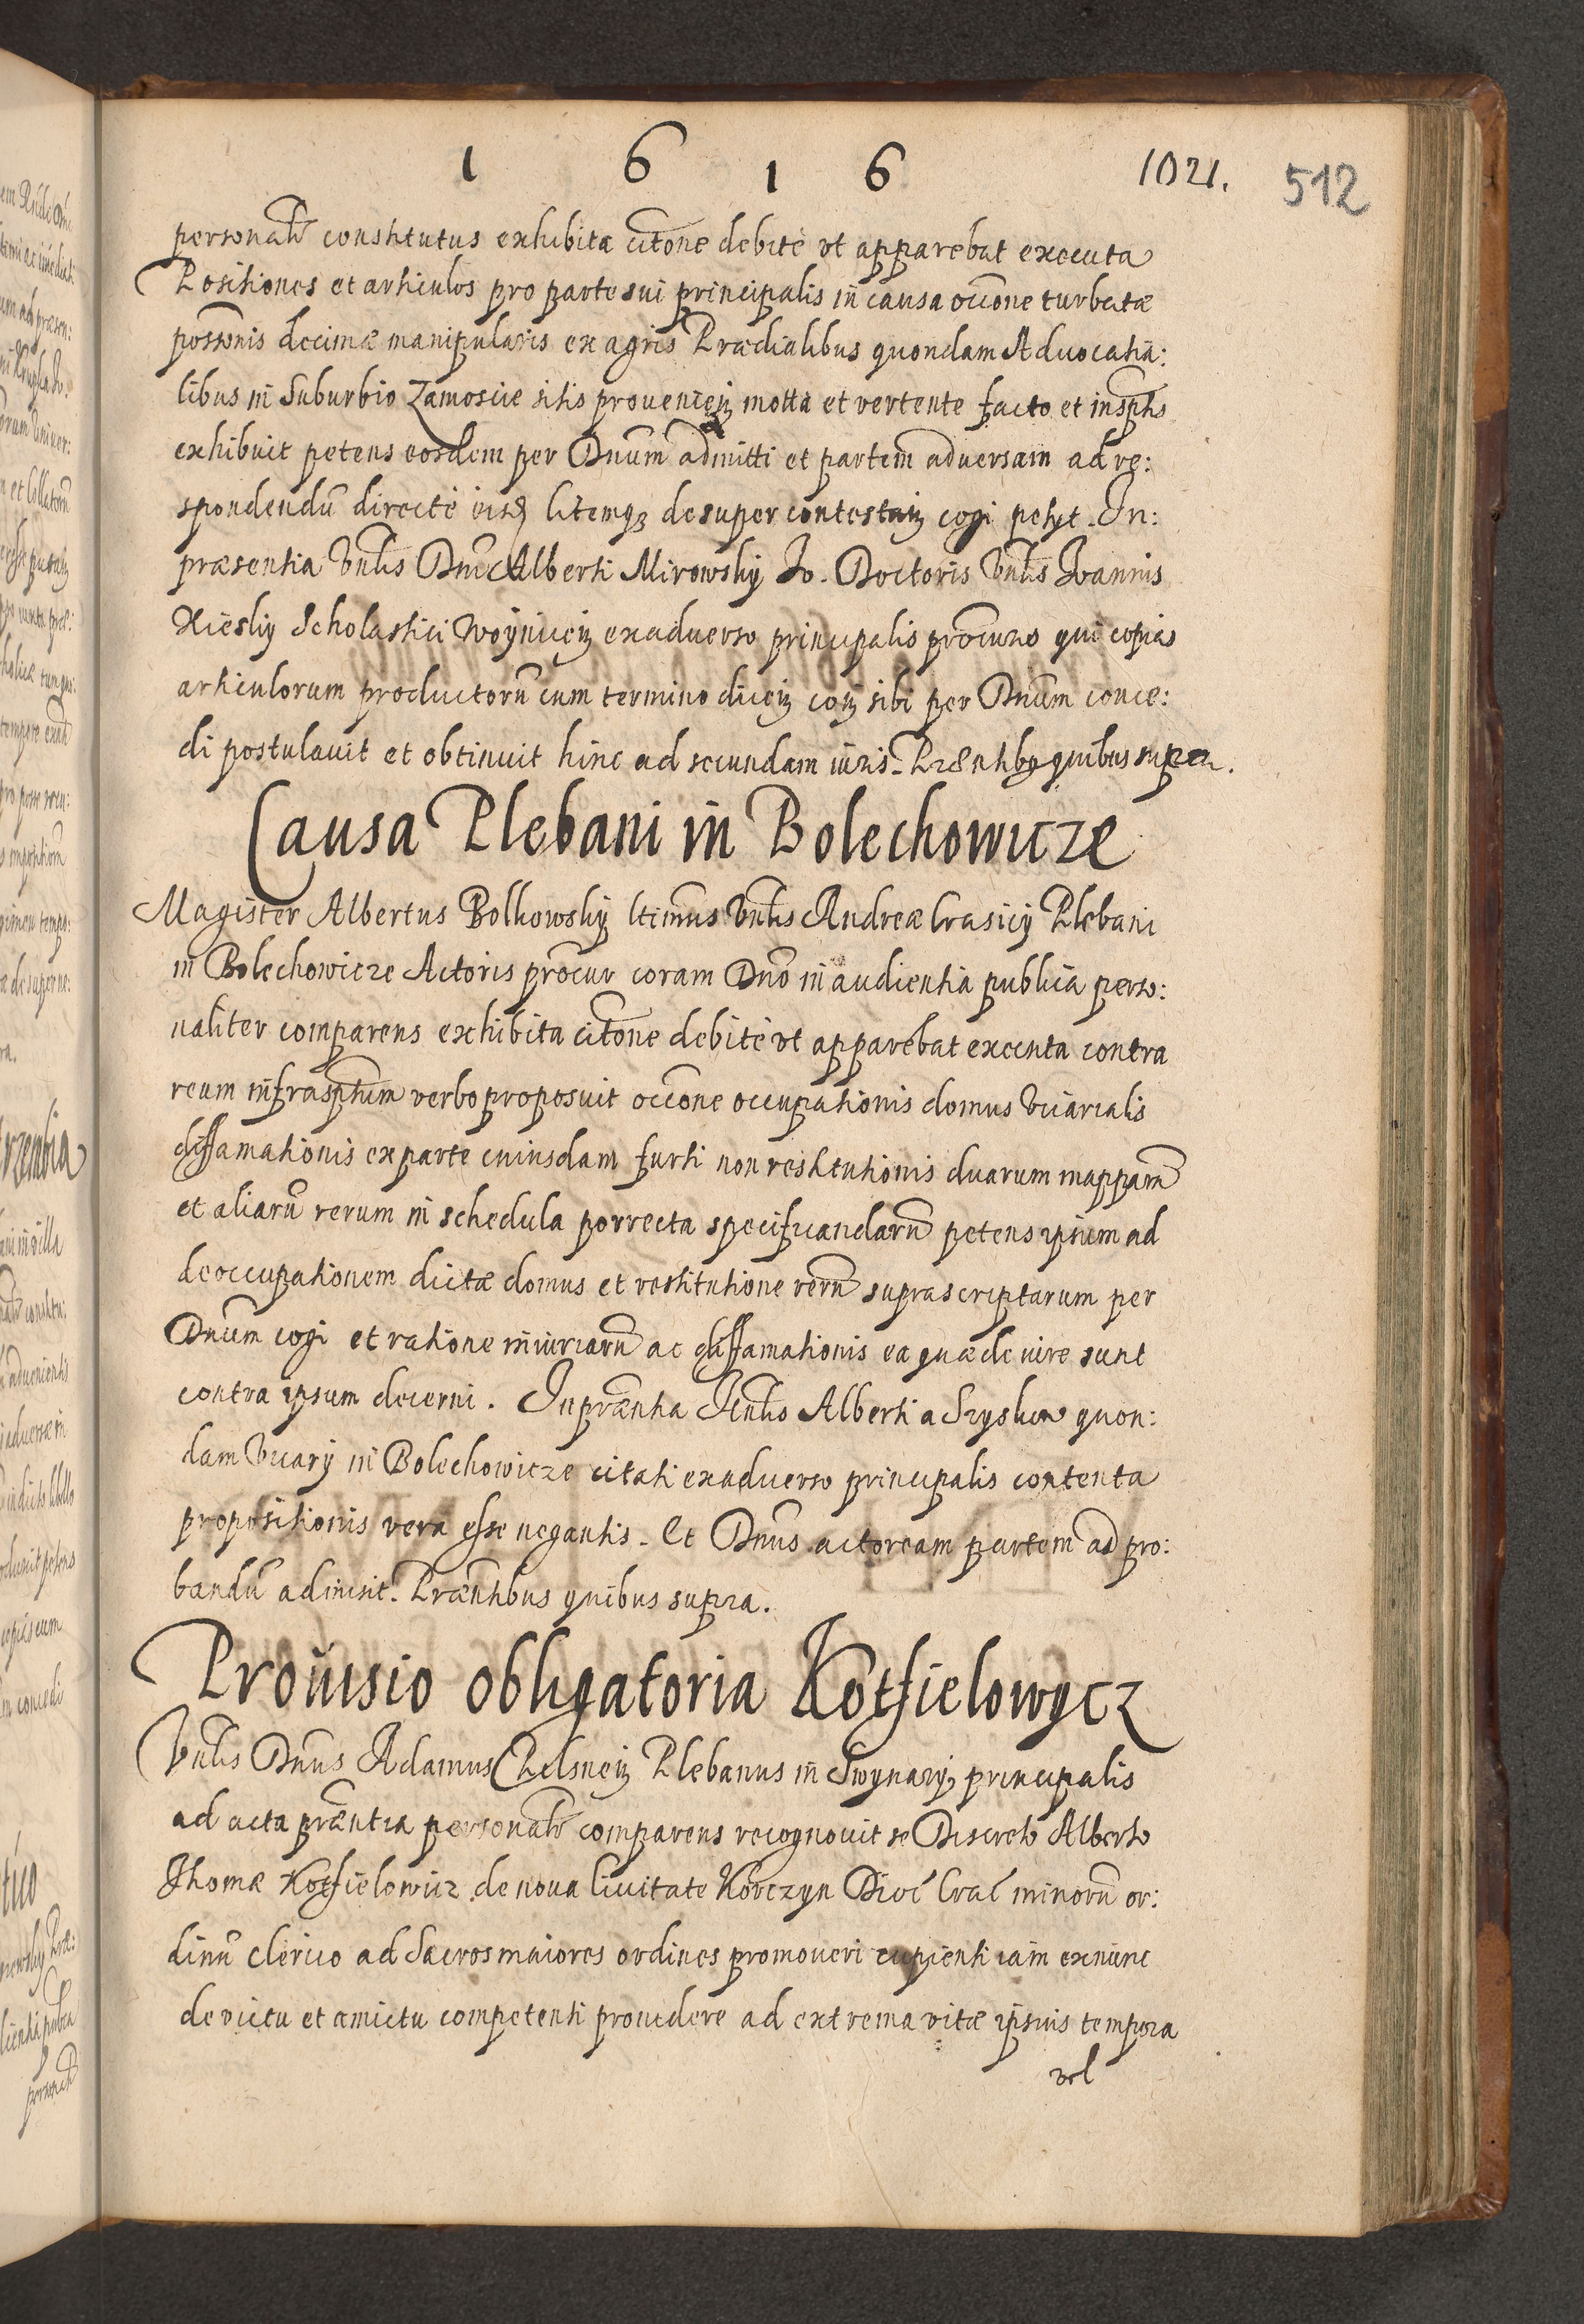 1 6 1 6 1021. 512
personalr constitutus exhibita citone debite vt apparebat executa
Positiones et articulos pro parte sui principalis in causa occone turbatæ
possonis decimæ manipularis ex agris Prædialibus quondam Aduocatia:
libus in Suburbio Zamoscie sitis prouenien motta et vertente facto et insptis
exhibuit petens eosdem per Dnum admitti et partem aduersam ad re:
spondendū directe eisd litemq desuper contestan cogi petyt. In:
præsentia Vnlis Dni Alberti Mirowsky Io. Doctoris Vnlis Ioannis
Xiesky Scholastici Woynicen exaduerso principalis procuris qui copias
articulorum productorū cum termino dicen con sibi per Dnum conce:
di postulauit et obtinuit hinc ad secundam iuris. Præntibq quibus supra.
Causa Plebani in Bolechowicze
Magister Albertus Bolkowsky ltimus Vnlis Andreæ Crasicy Plebani
in Bolechowicze Actoris procur coram Dno in audientia publica perso:
naliter comparens exhibita citone debite vt apparebat executa contra
reum infrasptum verbo proposuit occone occupationis domus Vicarialis
diffamationis ex parte cuiusdam furti non restitutionis duarum mapparū
et aliarū rerum in schedula porrecta specificandarū petens ipsum ad
deoccupationem dictæ domus et restitutione rerū suprascriptarum per
Dnum cogi et ratione iniuriarū ac diffamationis ea quæ de iure sunt
contra ipsum decerni. In præntia Hnlis Alberti a quon:
dam Vicary in Bolechowicze citati exaduerso principalis contenta
propositionis vera esse negantis. Et Dnus actoream partem ad pro:
bandū admisit. Præntibus quibus supra.
Prouisio obligatoria Kotfielowycz
Vnlis Dnus Adamus Pelsnen Plebanus in Swynary principalis
ad acta præntia personalr comparens recognouit se Discreto Alberto
Thomæ Kotfielowicz de noua Ciuitate Korczyn Dioc Crac minorū or:
dinū clerico ad Sacros maiores ordines promoueri cupienti iam exnunc
de victu et amictu competenti prouidere ad extrema vitæ ipsius tempora
vel